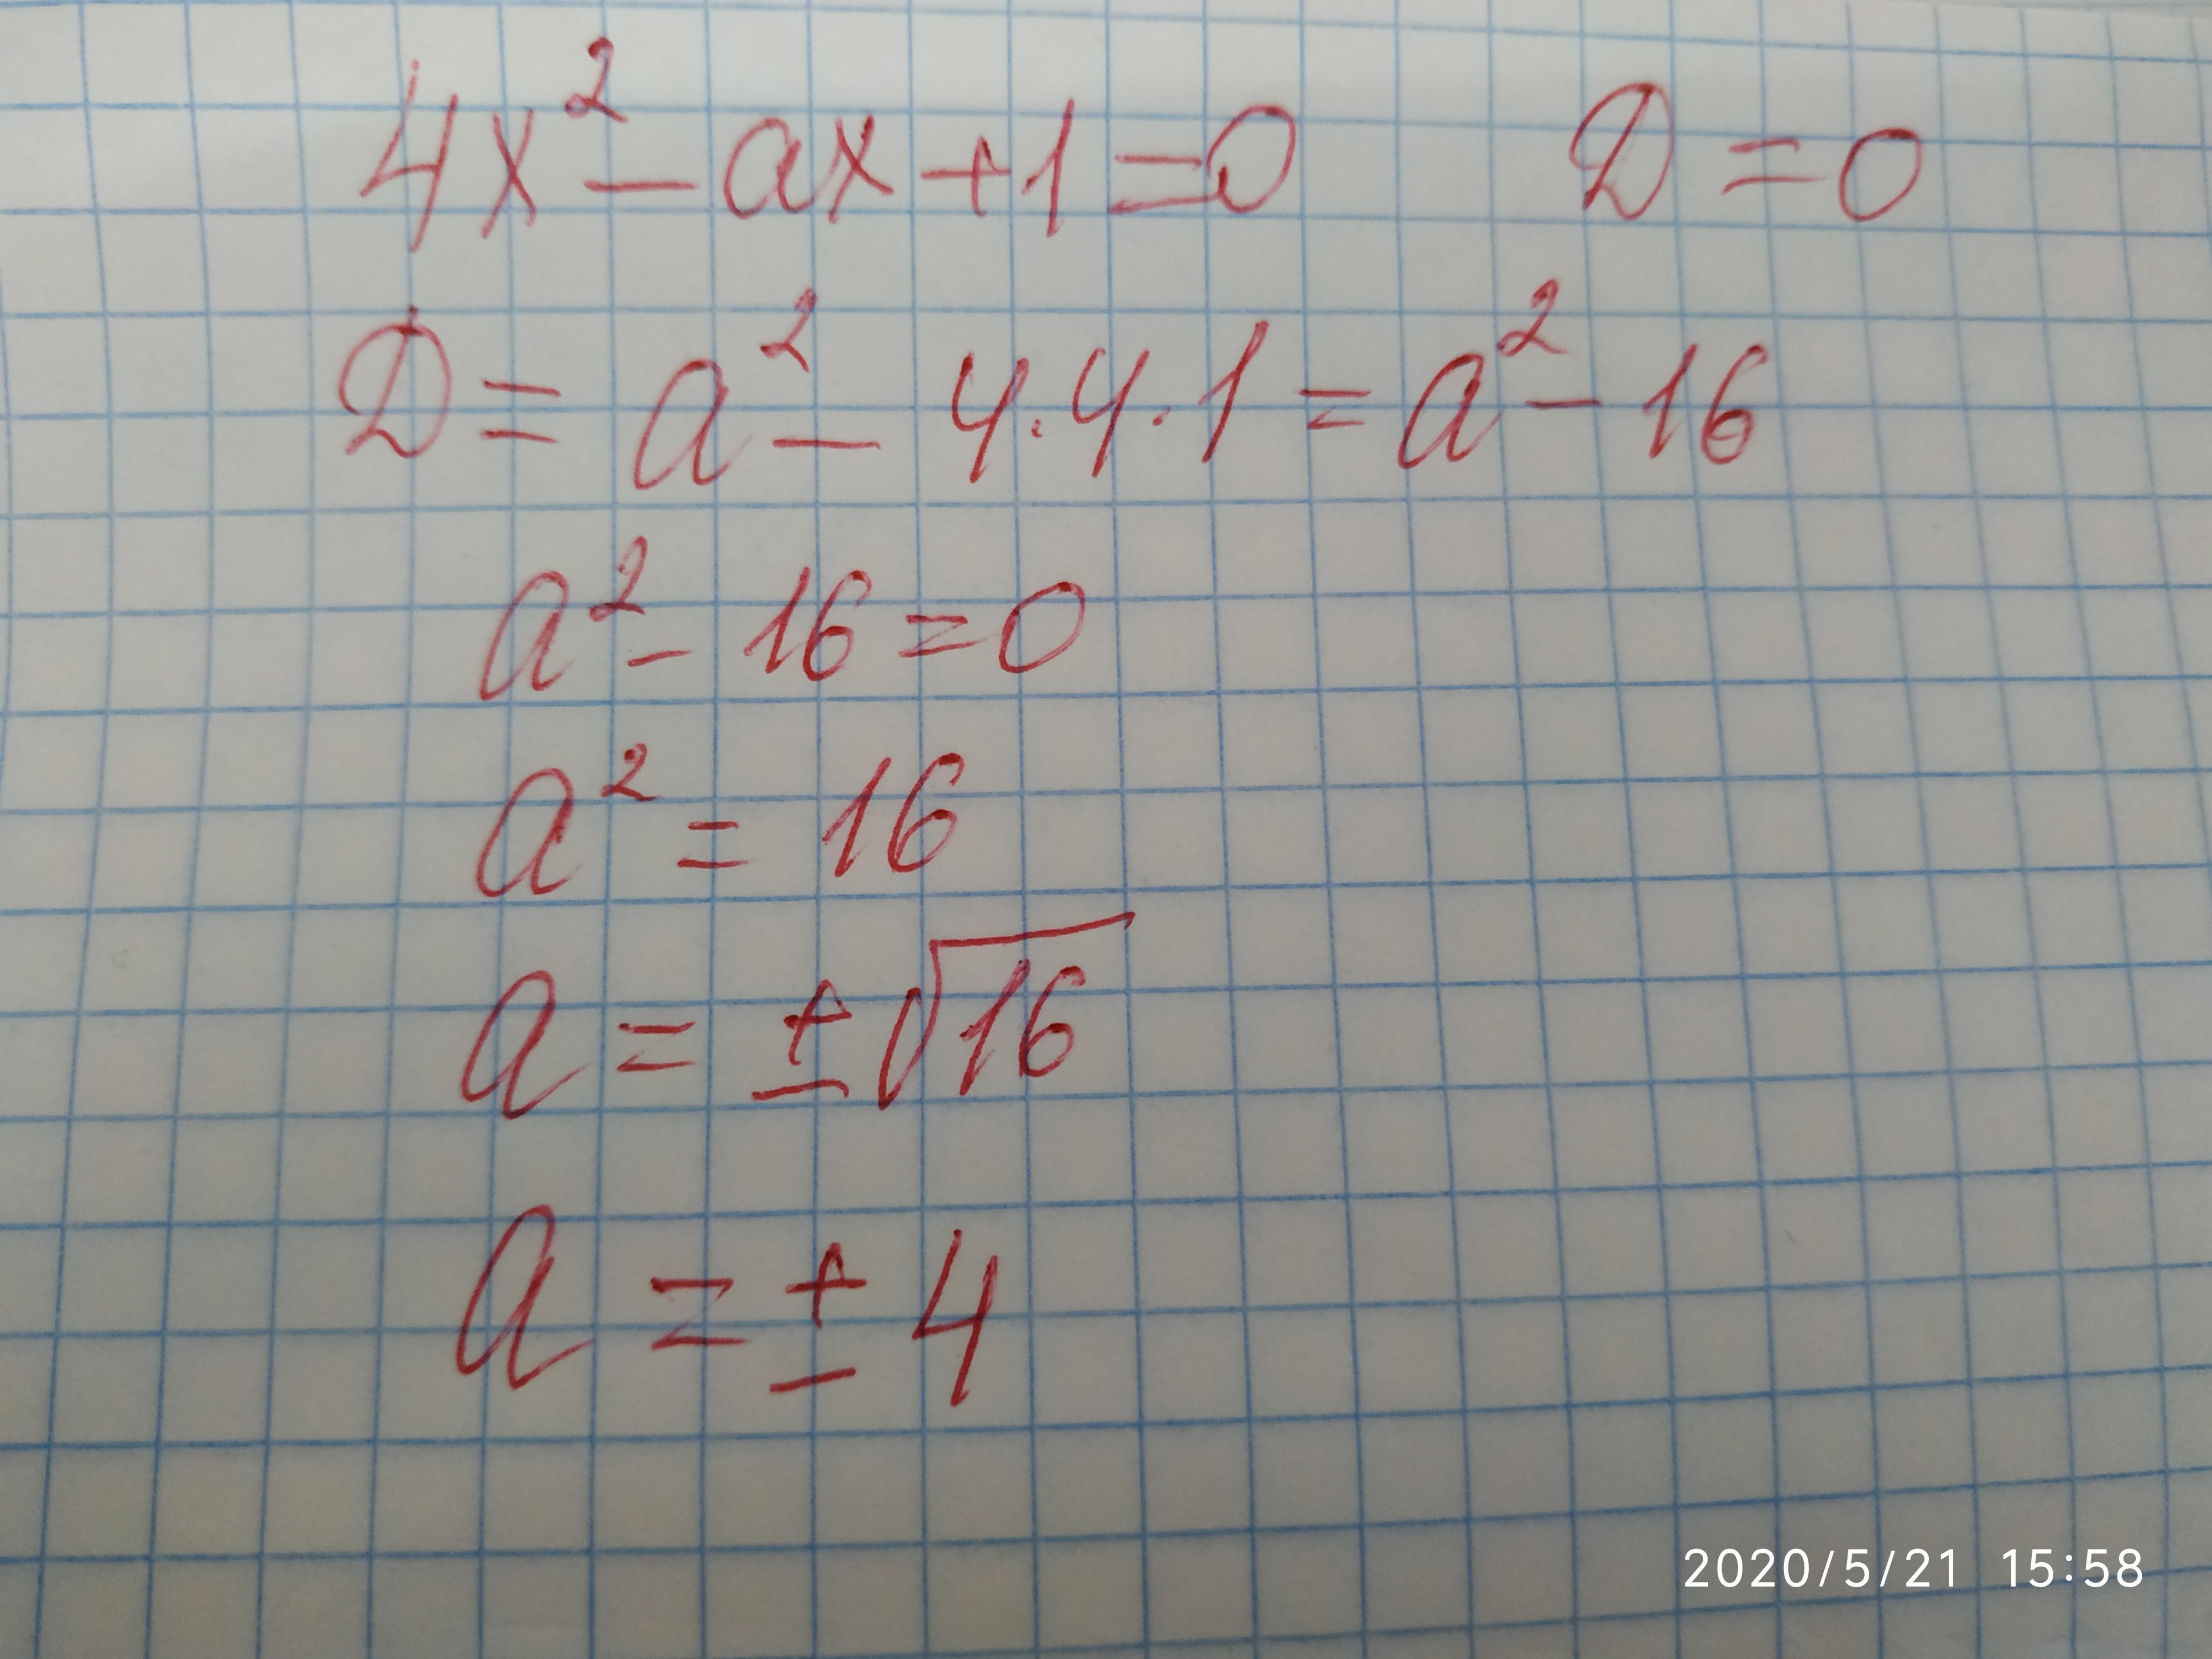 4x² - ax + 1 = 0 D = 0
D = a² - 4 · 4 · 1 = a² - 16
a² - 16 = 0
a² = 16
a = ± √16
a = ± 4
2020/5/21 15:58